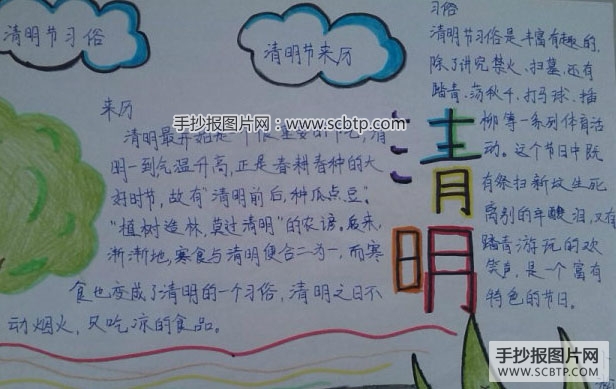 清明节习俗
清明节来历
来历
清明最开始是一个很重要的节气,清
明一到气温升高,正是春耕春种的大
好时节,故有"清明前后,种瓜点豆"。
"植树造林,莫过清明"的农谚。后来,
渐渐地,寒食与清明便合二为一,而寒
食也变成了清明的一个习俗,清明之日不
动烟火,只吃凉的食品。
清
明
习俗
清明节习俗是丰富有趣的,
除了讲究禁火、扫墓,还有
踏青、荡秋千、打马球、插
柳等一系列体育活
动。这个节日中既
有祭扫新坟生死
离别的辛酸泪,又有
踏青游玩的欢
笑声,是一个富有
特色的节日。
手抄报图片网:www.scbtp.com
手抄报图片网
WWW.SCBTP.COM